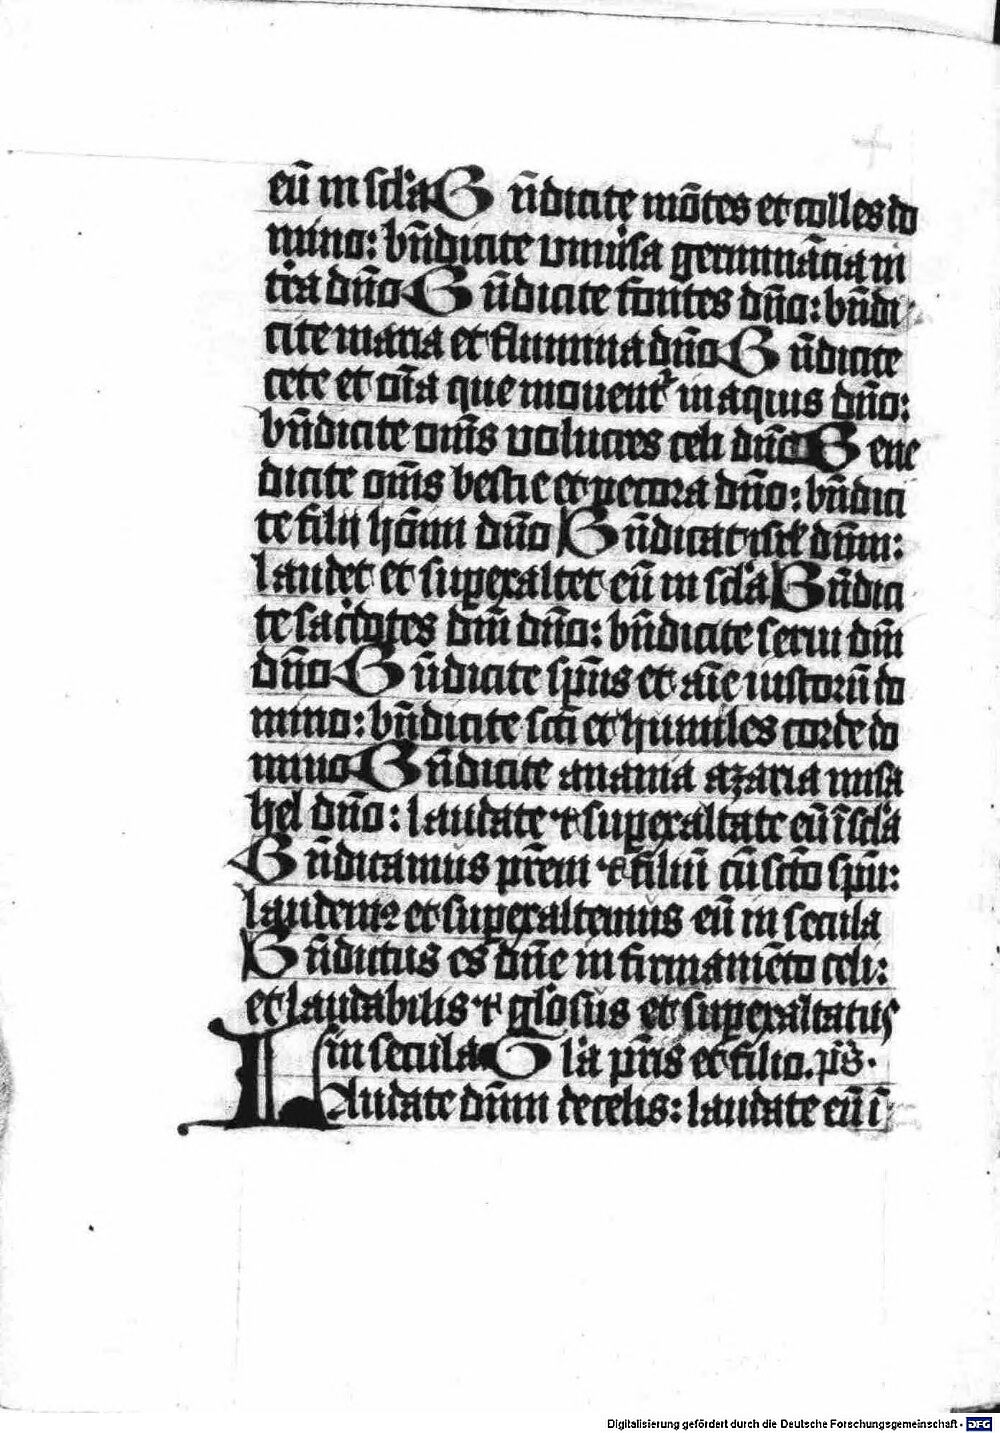 eū in scła Bn̄dicite mōtes et colles do
mino: bn̄dicite vniūsa germinācia in
tr̄a dn̄o Bn̄dicite fontes dn̄o: bn̄di
cite maria et flumina dn̄o Bn̄dicite
cete et oīa que mouent᷑ in aquis dn̄o:
bn̄dicite om̄s volucres celi dn̄o Bene
dicite om̄s bestie et pecora dn̄o: bn̄dici
te filii hōim dn̄o Bn̄dicat isrl̄ dn̄m:
laudet et superexaltet eū in scła Bn̄dici
te sac̄dotes dn̄i dn̄o: bn̄dicite serui dn̄i
dn̄o Bn̄dicite sp̄us et aīe iustorū do
mino: bn̄dicite sc̄ti et humiles corde do
mino Bn̄dicite anania azaria misa
hel dn̄o: laudate ⁊ superexaltate eū ī scła
Bn̄dicamus pr̄em ⁊ filiū cū sc̄to sp̄u:
laudemꝰ et superexaltemus eū in secula
Bn̄dictus es dn̄e in firmamēto celi:
et laudabilis ⁊ glōsus et superexaltatus
in secula Gl̄a pr̄is et filio. p̄s.
Laudate dn̄m de celis: laudate eū ī
Digitalisierung gefördert durch die Deutsche Forschungsgemeinschaft - DFG